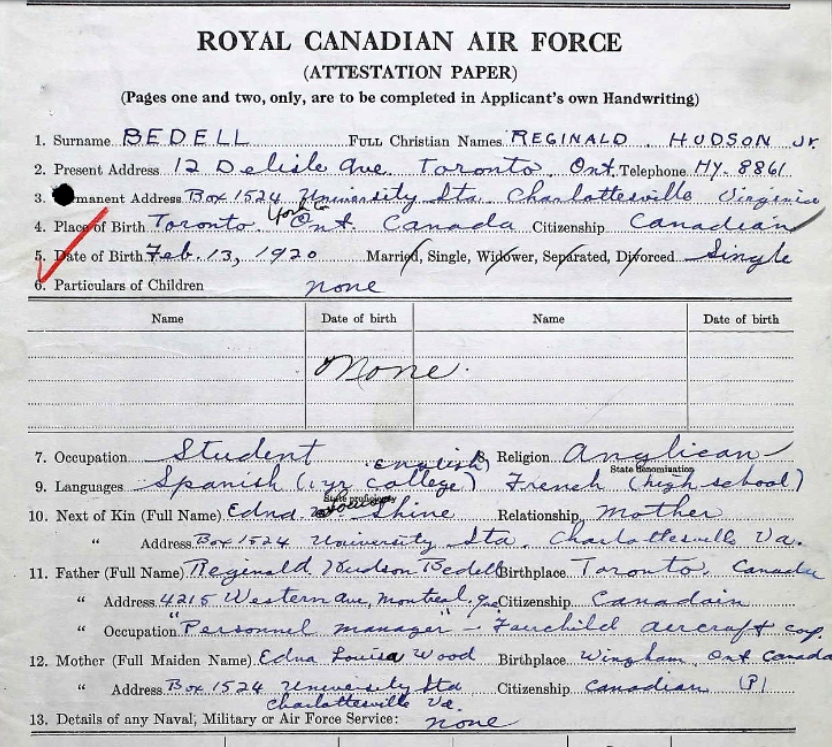 ROYAL CANADIAN AIR FORCE
(ATTESTATION PAPER)
(Pages one and two, only, are to be completed in Applicant's own Handwriting)
1. Surname BEDELL FULL Christian Names REGINALD . HUDSON Jr.
2. Present Address 12 Delisle Ave. Toronto. Ont. Telephone HY. 8861
3. manent Address Box 1524 University Sta. Charlottesville Virginia
York Co
4. Place of Birth Toronto. Ont. Canada Citizenship Canadian
5. Date of Birth Feb. 13, 1920 Married, Single, Widower, Separated, Divorced Single
6. Particulars of Children none
Name Date of birth Name Date of birth
None.
7. Occupation Student 8. Religion Anglican
English State denomination
9. Languages Spanish (1 yr college) French (high school)
State proficiency
Louisa
10. Next of Kin (Full Name) Edna Shine Relationship Mother
" Address Box 1524 University Sta. Charlottesville Va.
11. Father (Full Name) Reginald Hudson Bedell Birthplace Toronto. Canada
" Address 4215 Western Ave, Montreal. Que Citizenship Canadain
" Occupation "Personnel manager" - Fairchild aircraft cop.
12. Mother (Full Maiden Name) Edna Louisa Wood Birthplace Wingham, Ont Canada
" Address Box 1524 University Sta Citizenship Canadian (P)
Charlottesville Va.
13. Details of any Naval, Military or Air Force Service: none